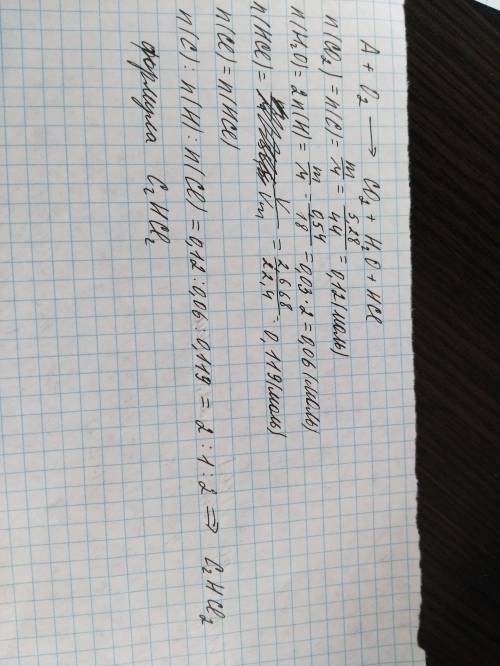 A + O₂ → CO₂ + H₂O + HCl
n(CO₂) = n(C) = m/M = 5,28/44 = 0,12 (моль)
n(H₂O) = 2n(H) = m/M = 0,54/18 = 0,03·2 = 0,06 (моль)
n(HCl) = V/Vm = 2,668/22,4 = 0,119 (моль)
n(Cl) = n(HCl)
n(C) : n(H) : n(Cl) = 0,12 : 0,06 : 0,119 = 2 : 1 : 2 ⇒ C₂HCl₂
формула C₂HCl₂